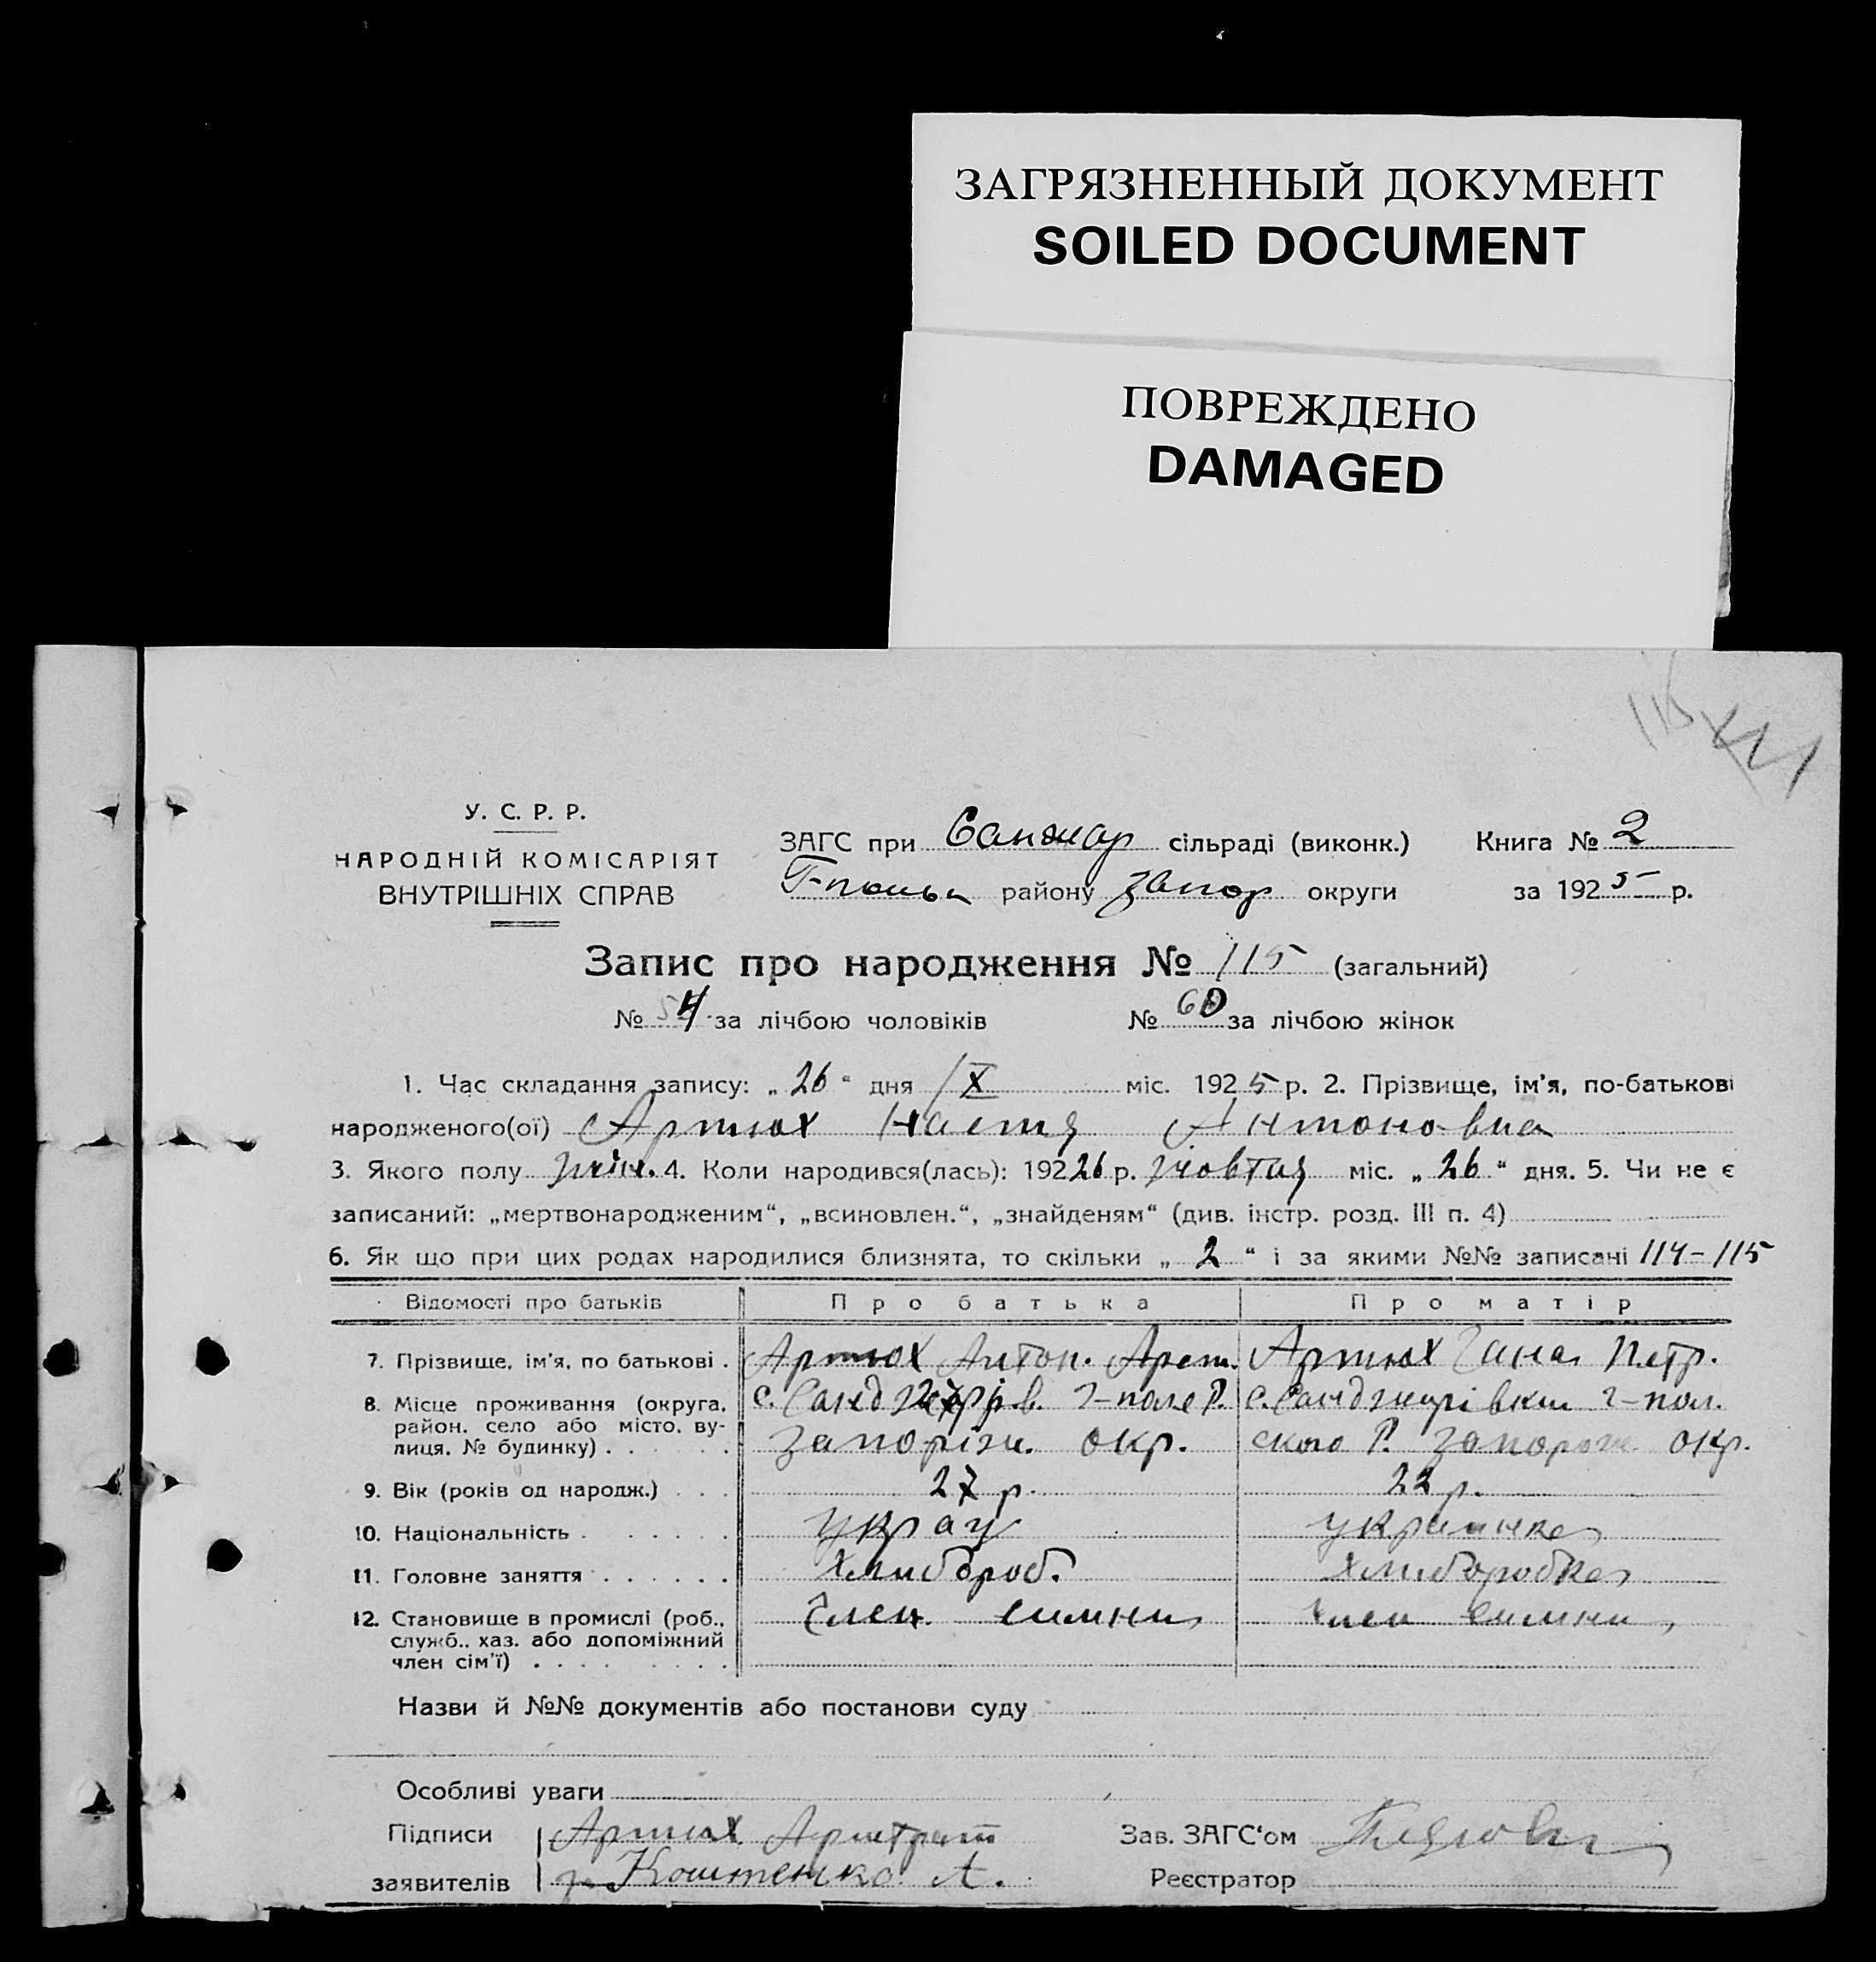 ЗАГРЯЗНЕННЫЙ ДОКУМЕНТ
SOILED DOCUMENT
ПОВРЕЖДЕНО
DAMAGED
115
У. С. Р. Р.
НАРОДНІЙ КОМІСАРІЯТ
ВНУТРІШНІХ СПРАВ
ЗАГС при Санжар сільраді (виконк.) Книга № 2
району Запор округи за 1925 р.
Запис про народження № 115 (загальний)
№ 54 за лічбою чоловіків № 60 за лічбою жінок
1. Час складання запису: „26“ дня IX міс. 1925 р. 2. Прізвище, ім’я, по-батькові
народженого(ої) Артюх Настя Антоновна
3. Якого полу жін. 4. Коли народився(лась): 19226 р. жовтня міс. „26“ дня. 5. Чи не є
записаний: „мертвонародженим“, „всиновлен.“, „знайденям“ (див. інстр. розд. III п. 4)
6. Як що при цих родах народилися близнята, то скільки „2“ і за якими №№ записані 114-115
Відомості про батьків Про батька Про матір
7. Прізвище, ім’я, по батькові . Артюх Антон. Арет. Артюх Гана Петр.
8. Місце проживання (округа, район, село або місто, вулиця, № будинку) . . . . . . с. г-поле Р. с. Санджарівки г-пол.
Запоріж. окр. ского Р. Запорож окр.
9. Вік (років од народж.) . . . 27 р. 22 р.
10. Національність . . . . . . укра украинка
11. Головне заняття . . . . . . хлибороб. хлиборобка
12. Становище в промислі (роб., служб., хаз. або допоміжний член сім’ї) . . . . . . . . Член симни Член симни
Назви й №№ документів або постанови суду
Особливі уваги
Підписи Артюх Зав. ЗАГС‘ом
заявителів Коштенко А. Реєстратор